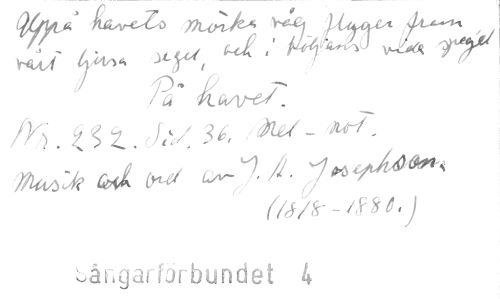 Uppå havets mörka våg flyger fram
vårt ljusa segel, och i böljans vida spegel
På havet.
Nr. 232. Sid. 36. Med-not.
Musik och ord av J. A. Josephson.
(1818-1880.)
Sångarförbundet 4